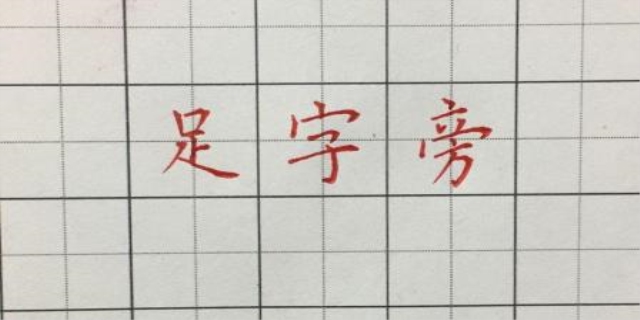 足字旁